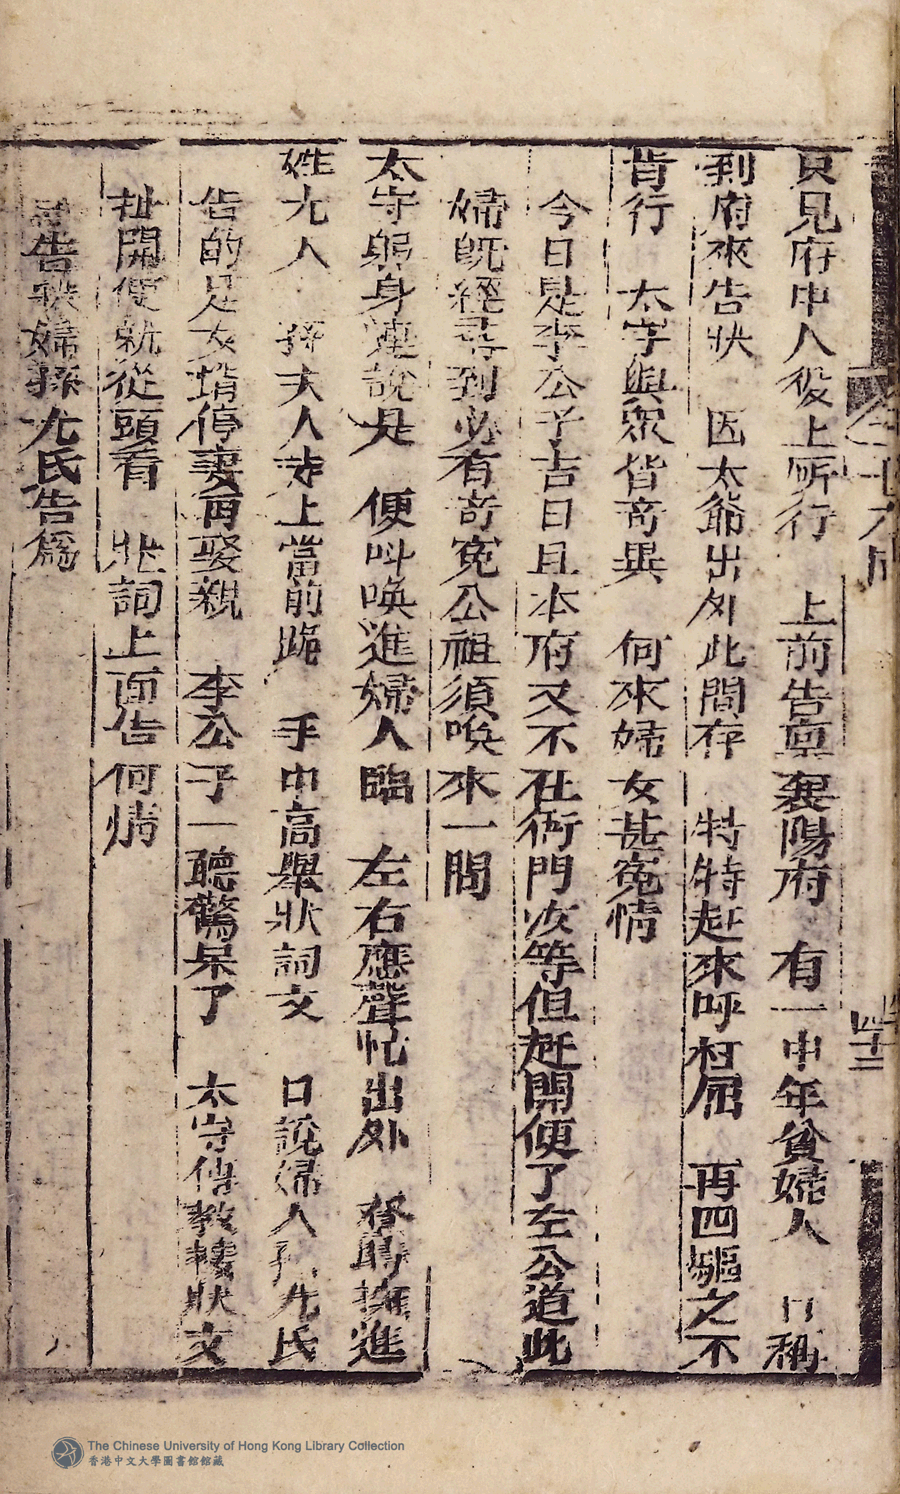 只見府中人役上所行　上前告禀襄陽府　有一中年貧婦人　口稱
到府來告狀　因太爺出外此間存　特特赶來呼枉屈　再四驅之不
肯行　太守與眾皆奇異　何來婦女甚寃情
今日是李公子吉日且本府又不在衙門汝等但赶開便了左公道此
婦旣經尋到必有奇寃公祖須喚來一問
太守躬身連說是　便呌喚進婦人臨　左右應聲忙出外　登時攙進
姓尤人　孫夫人走上當前跪　手中高舉狀詞文　口說婦人孫尤氏
告的是女壻停妻再娶親　李公子一聽驚呆了　太守傳敎接狀文
扯開便就從頭看　狀詞上面告何情
告狀婦孫尤氏告爲
四十三
The Chinese University of Hong Kong Library Collection
香港中文大學圖書館館藏